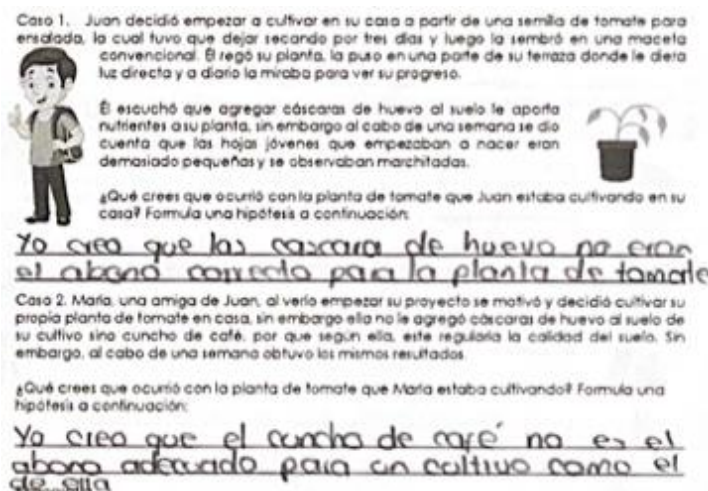 Caso 1. Juan decidió empezar a cultivar en su casa a partir de una semilla de tomate para
ensalada, la cual tuvo que dejar secando por tres días y luego la sembró en una maceta
convencional. Él regó su planta, la puso en una parte de su terraza donde le diera
luz directa y a diario la miraba para ver su progreso.
Él escuchó que agregar cáscaras de huevo al suelo le aporta
nutrientes a su planta, sin embargo al cabo de una semana se dio
cuenta que las hojas jóvenes que empezaban a nacer eran
demasiado pequeñas y se observaban marchitadas.
¿Qué crees que ocurrió con la planta de tomate que Juan estaba cultivando en su
casa? Formula una hipótesis a continuación:
Yo creo que las cascara de huevo no eran
el abono correcto para la planta de tomate
Caso 2. María, una amiga de Juan, al verlo empezar su proyecto se motivó y decidió cultivar su
propia planta de tomate en casa, sin embargo ella no le agregó cáscaras de huevo al suelo de
su cultivo sino cuncho de café, por que según ella, este regularía la calidad del suelo. Sin
embargo, al cabo de una semana obtuvo los mismos resultados
¿Qué crees que ocurrió con la planta de tomate que María estaba cultivando? Formula una
hipótesis a continuación:
Yo creo que el cuncho de café no es el
abono adecuado para un cultivo como el
de ella